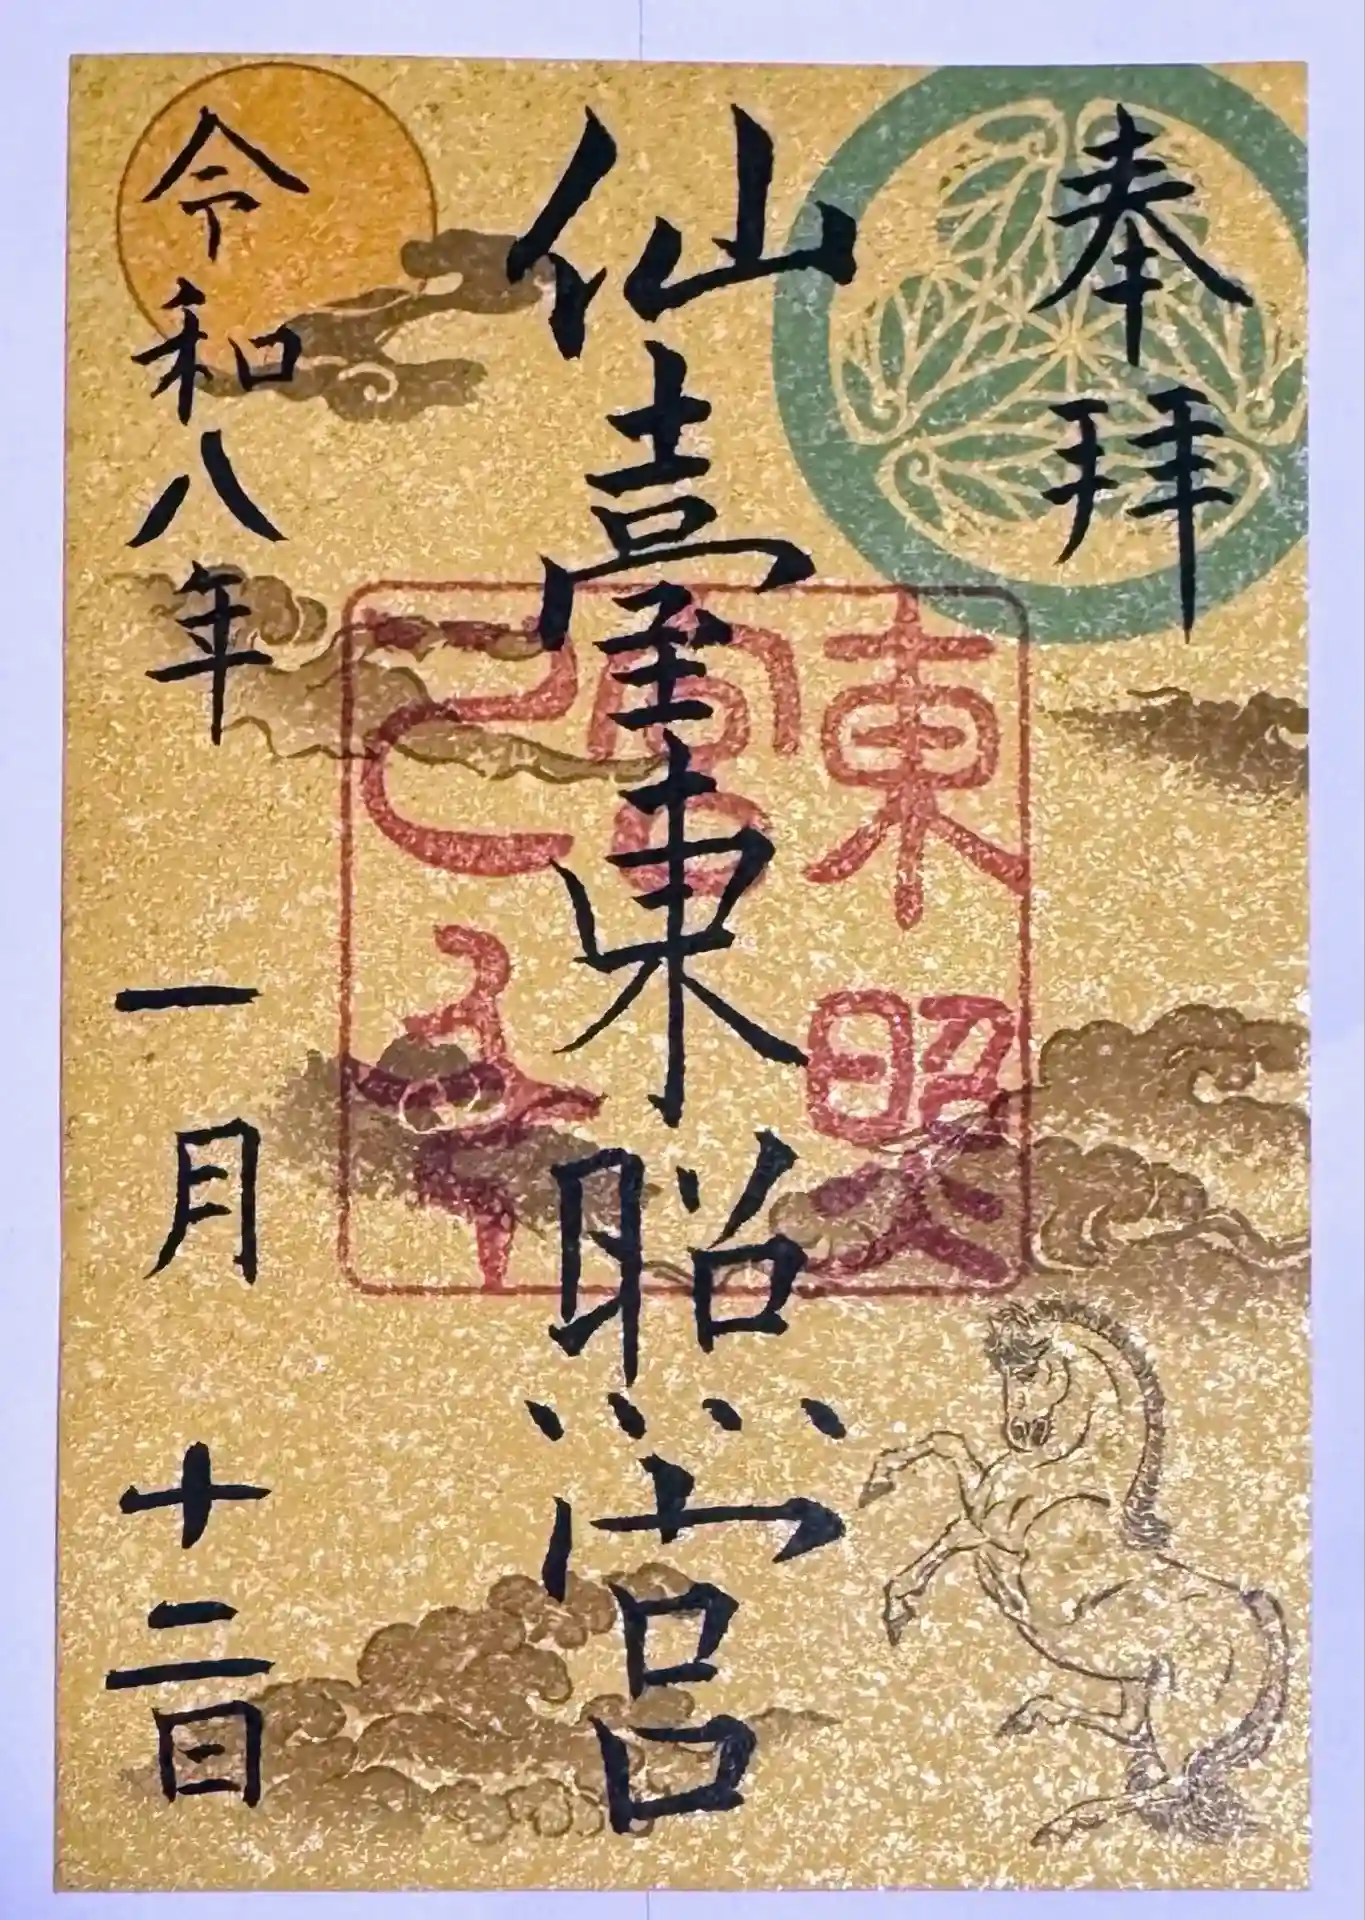 奉拝
仙臺東照宮
令和八年一月十二日
東照
宮